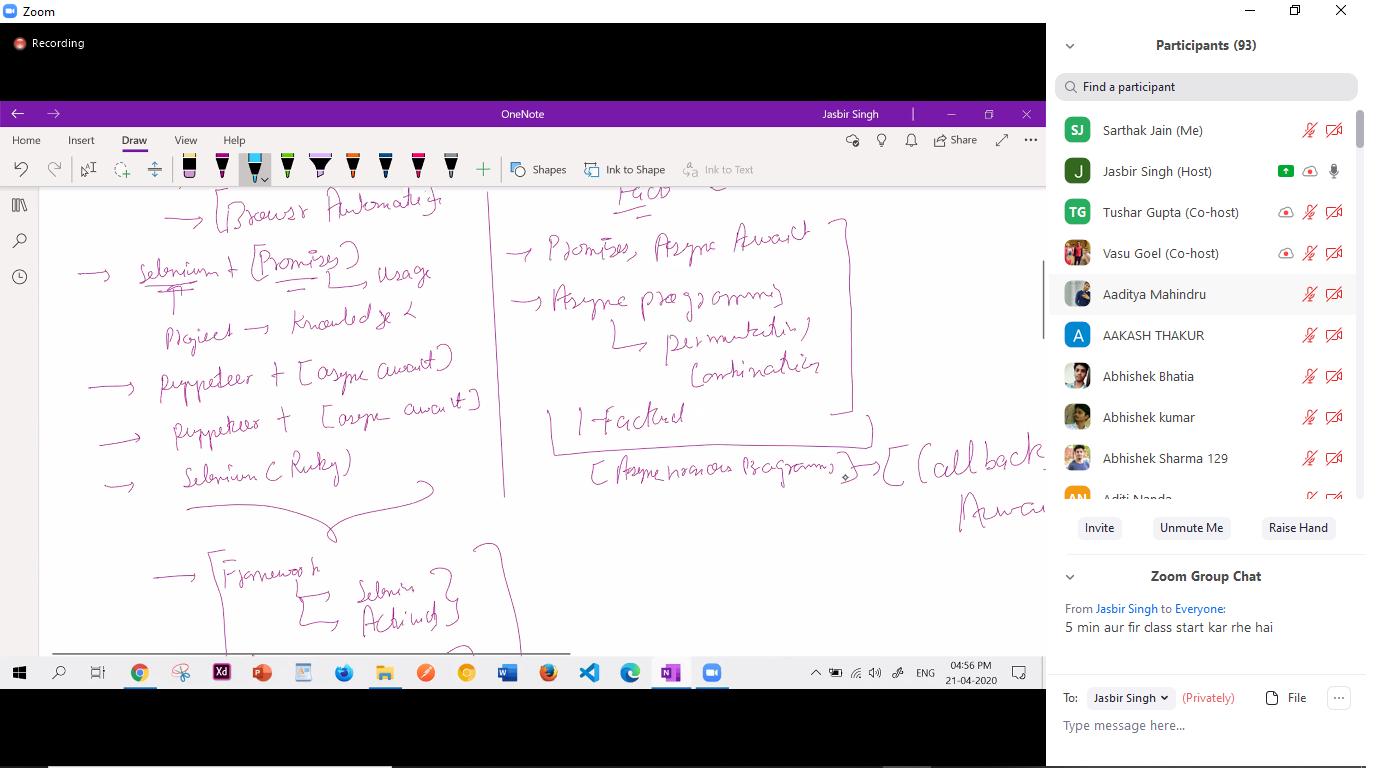 Zoom
Recording
OneNote
Jasbir Singh
Home Insert Draw View Help
Share
Shapes
Ink to Shape
Ink to Text
→ [Browser Automation
→ Selenium + [Promises)
→ Usage
Project → Knowledge
→ Puppeteer + [async await)
→ Puppeteer + [async await]
→ Selenium (Ruky)
→ [Framework
→ Selenium
→ Activity
→ Promises, Async Await
→ Async programming
→ permutation,
Combination
1 Factual
[Asynchronous Programming] → [Callback,
Awai
ENG
04:56 PM
21-04-2020
Participants (93)
Find a participant
SJ Sarthak Jain (Me)
J Jasbir Singh (Host)
TG Tushar Gupta (Co-host)
Vasu Goel (Co-host)
Aaditya Mahindru
A AAKASH THAKUR
Abhishek Bhatia
Abhishek kumar
Abhishek Sharma 129
AN Aditi Nanda
Invite
Unmute Me
Raise Hand
Zoom Group Chat
From Jasbir Singh to Everyone:
5 min aur fir class start kar rhe hai
To: Jasbir Singh (Privately)
File
Type message here...